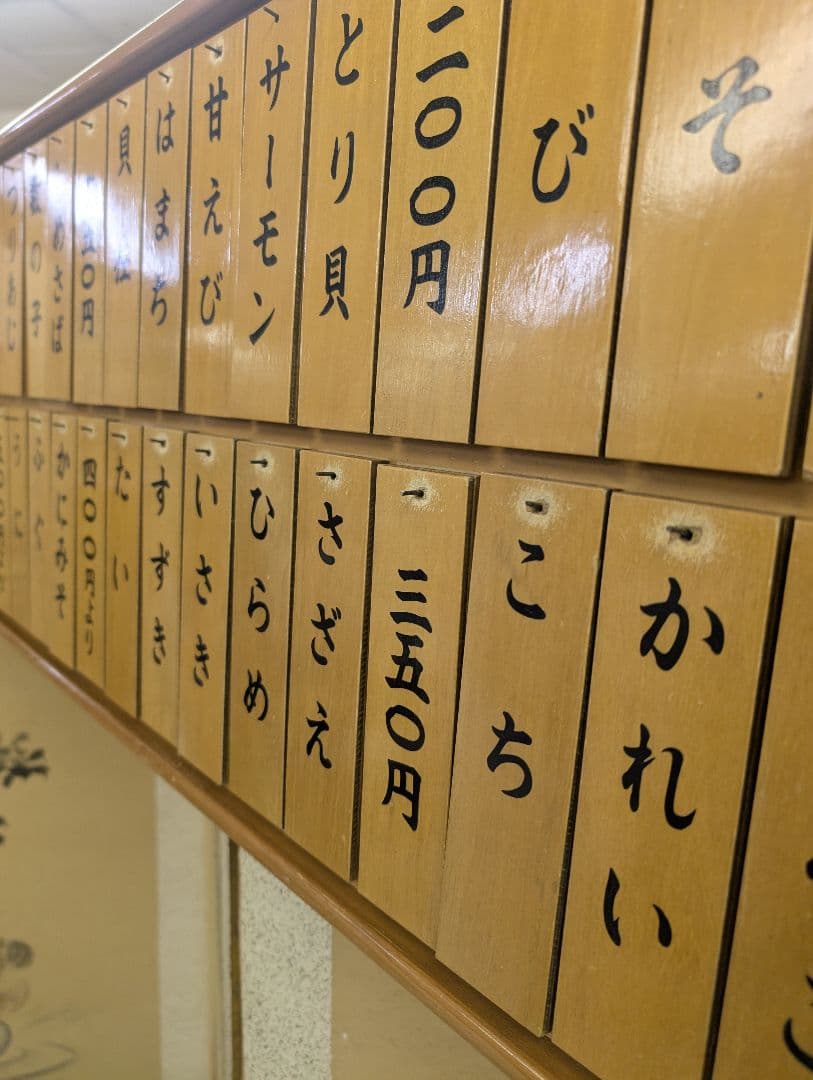 そ
び
二〇〇円
とり貝
サーモン
甘えび
はまち
貝柱
五〇円
しめさば
数の子
つりあじ
かれい
こち
三五〇円
さざえ
ひらめ
いさき
すずき
たい
四〇〇円より
かにみそ
ふぐ
うに